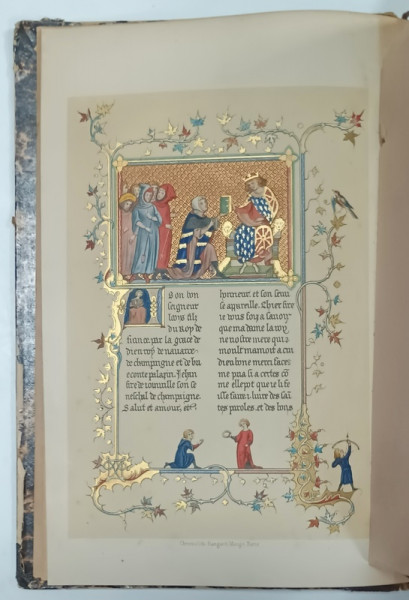 A son bon
seigneur
looys filz
du Roy de
france par la grace de
dieu roy de nauarre
de champigne et de bri
e conte palazin. Jehan
sire de ioinuille son se
neschal de champaigne
Salut et amour, et
honneur et son serui
se apareille. Chier sire
ie vous foy a sauoir
que madame la roy
ne vostre mere qui
moult mamoit a cui
dieu bone merci face
me pria si a certes co
me elle pot que ie li fe
isse faire .i. liure des sai
tes paroles et des bons
Chromolith. Hangard-Maugé, Paris